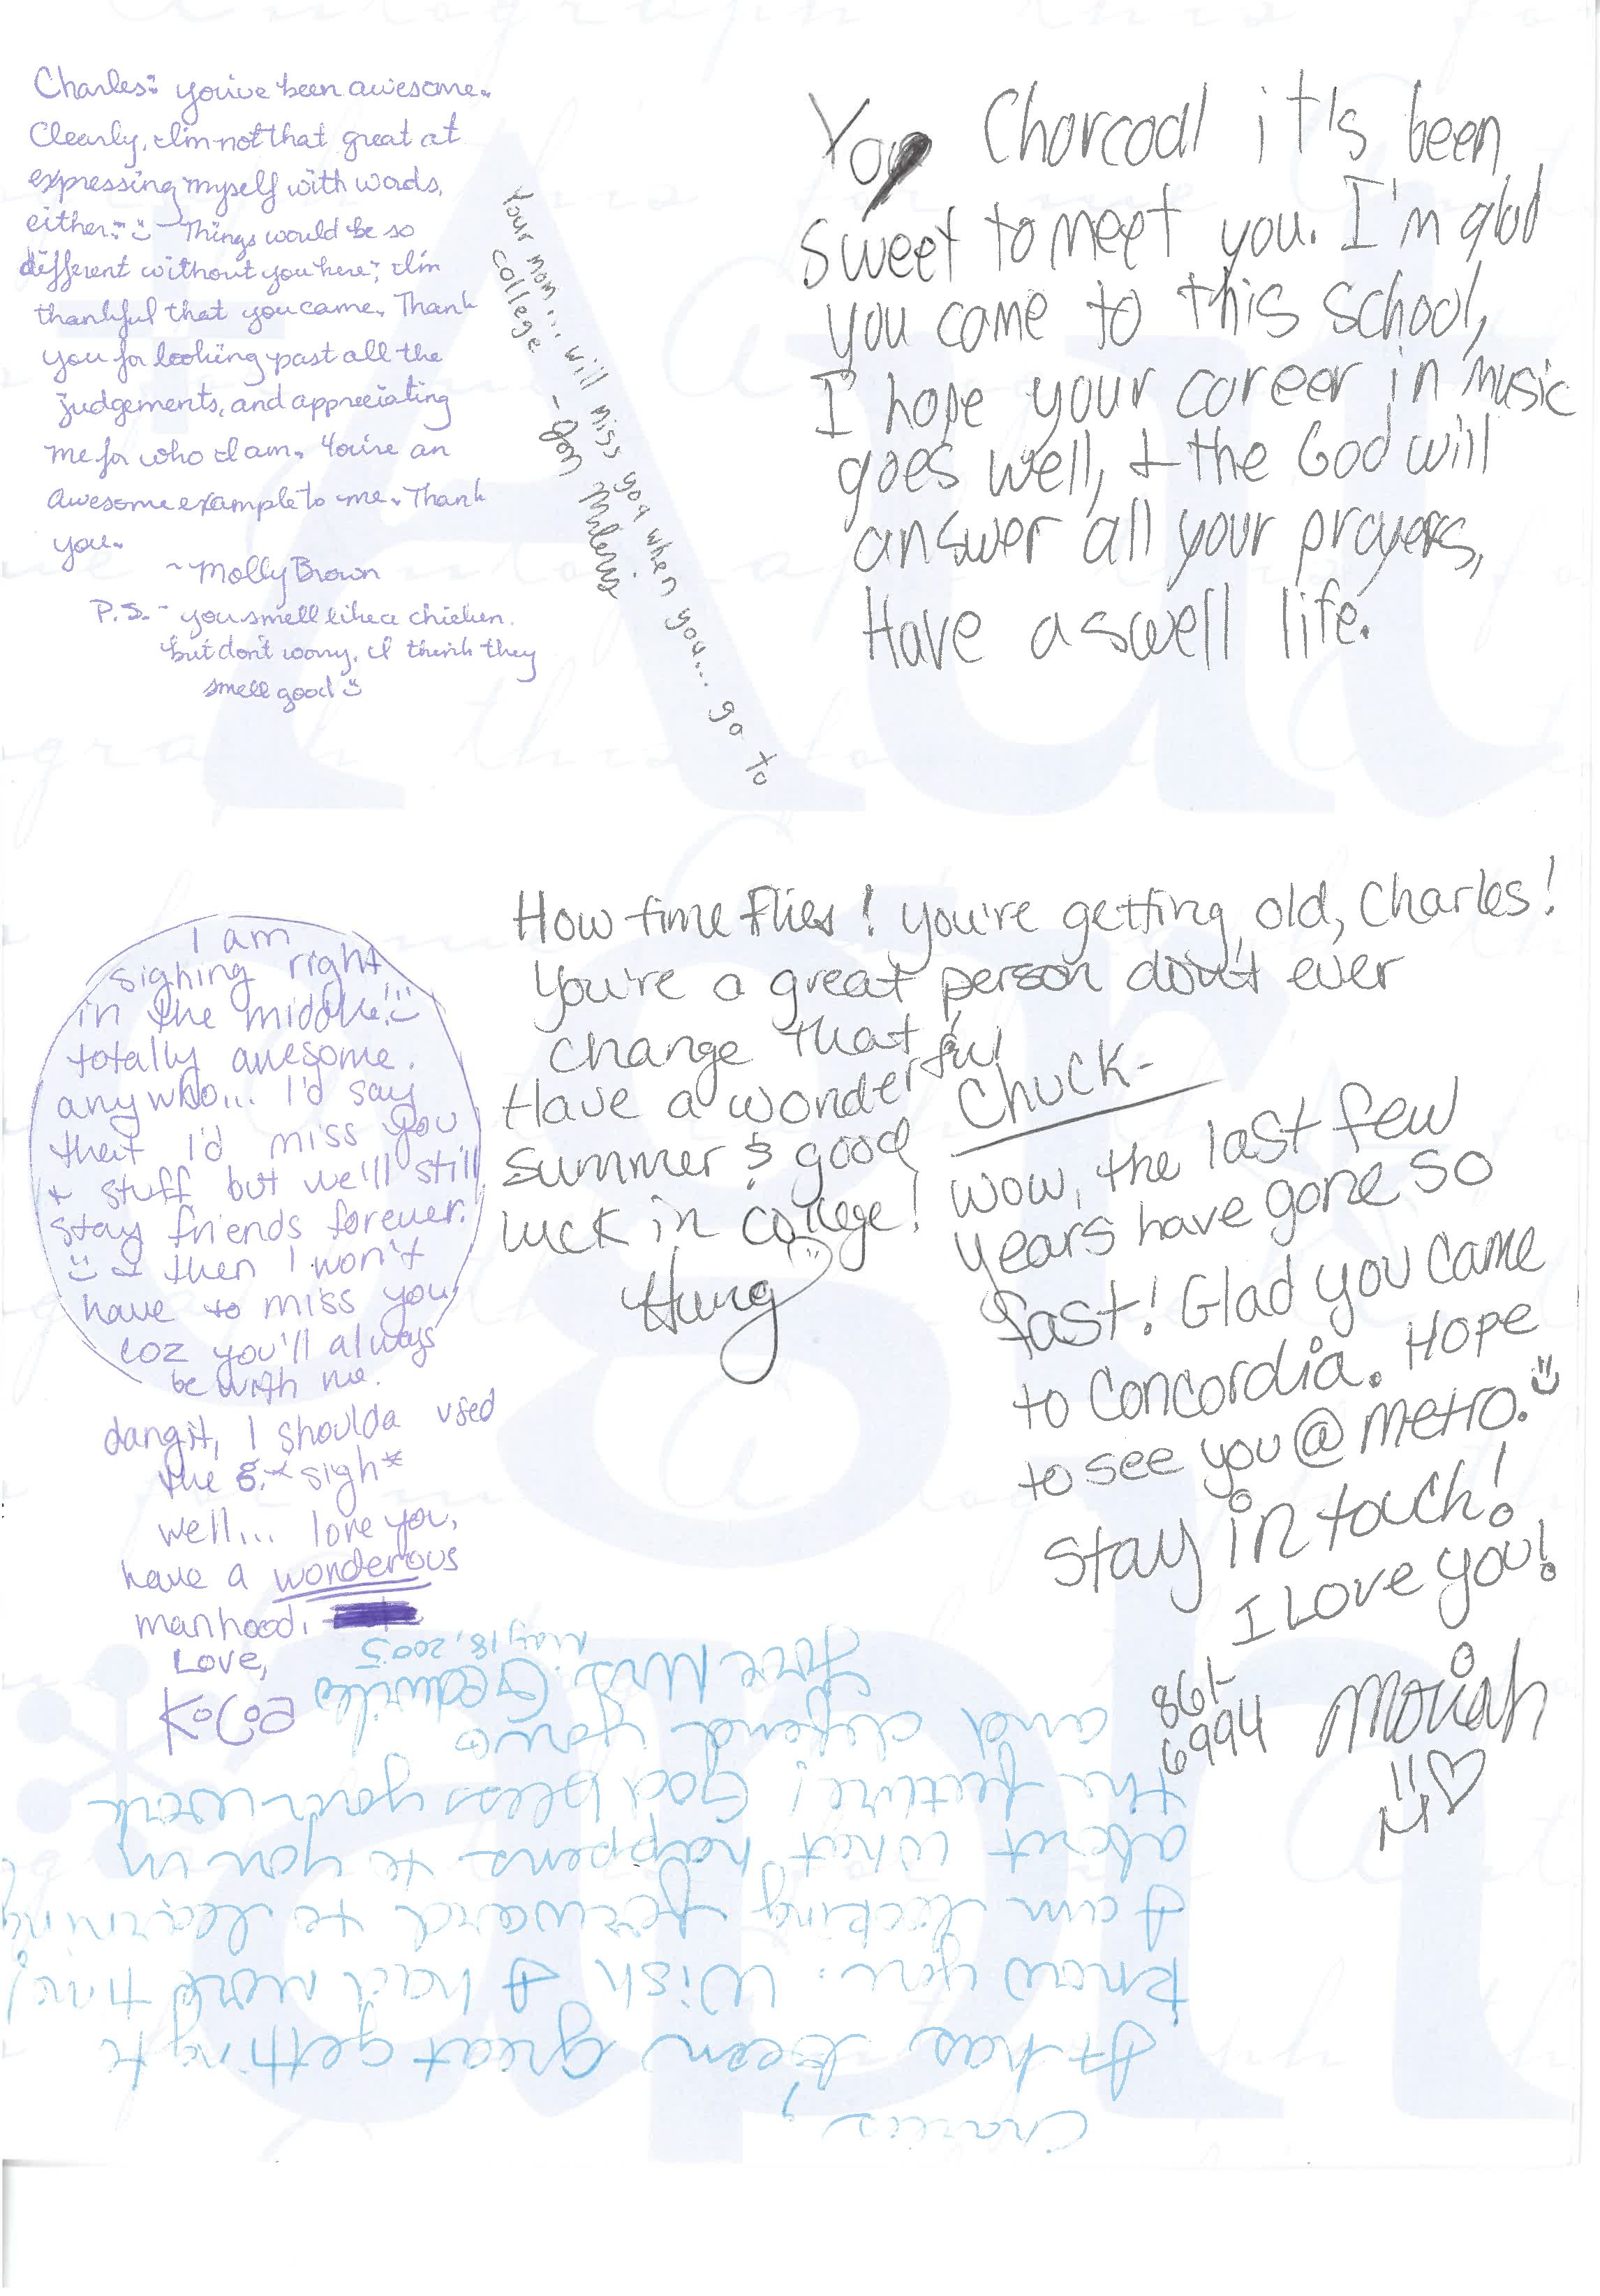 Charles: you've been awesome.
Clearly, I'm not that great at
expressing myself with words,
either. Things would be so
different without you here; I'm
thankful that you came. Thank
you for looking past all the
judgements, and appreciating
me for who I am. You're an
awesome example to me. Thank
you.
~Molly Brown
P.S. - you smell like a chicken.
but don't worry, I think they
smell good
Your mom... will miss you when you... go to
college
-Jon
Yo, Charcoal it's been
sweet to meet you. I'm glad
you came to this school,
I hope your career in music
goes well, & the God will
answer all your prayers,
Have a swell life.
How time flies! You're getting old, Charles!
You're a great person don't ever
change that &
Have a wonderful
summer & good
luck in college!
Hung
I am
sighing right
in the middle!
totally awesome.
anywho... I'd say
that I'd miss you
& stuff but we'll still
stay friends forever.
& then I won't
have to miss you
coz you'll always
be with me.
dangit, I shoulda used
the g. *sigh*
well... love you,
have a wonderous
manhood.
Love,
KoCoa
Chuck-
Wow, the last few
years have gone so
fast! Glad you came
to Concordia. Hope
to see you @ Metro.
Stay in touch!
I Love you!
Moriah
861-
6994
Charles,
It has been great getting to
know you. Wish I had more time!
I am looking forward to learning
about what happens to you in
the future! God bless your work
and defend you
Love Mrs.
May 18, 2005